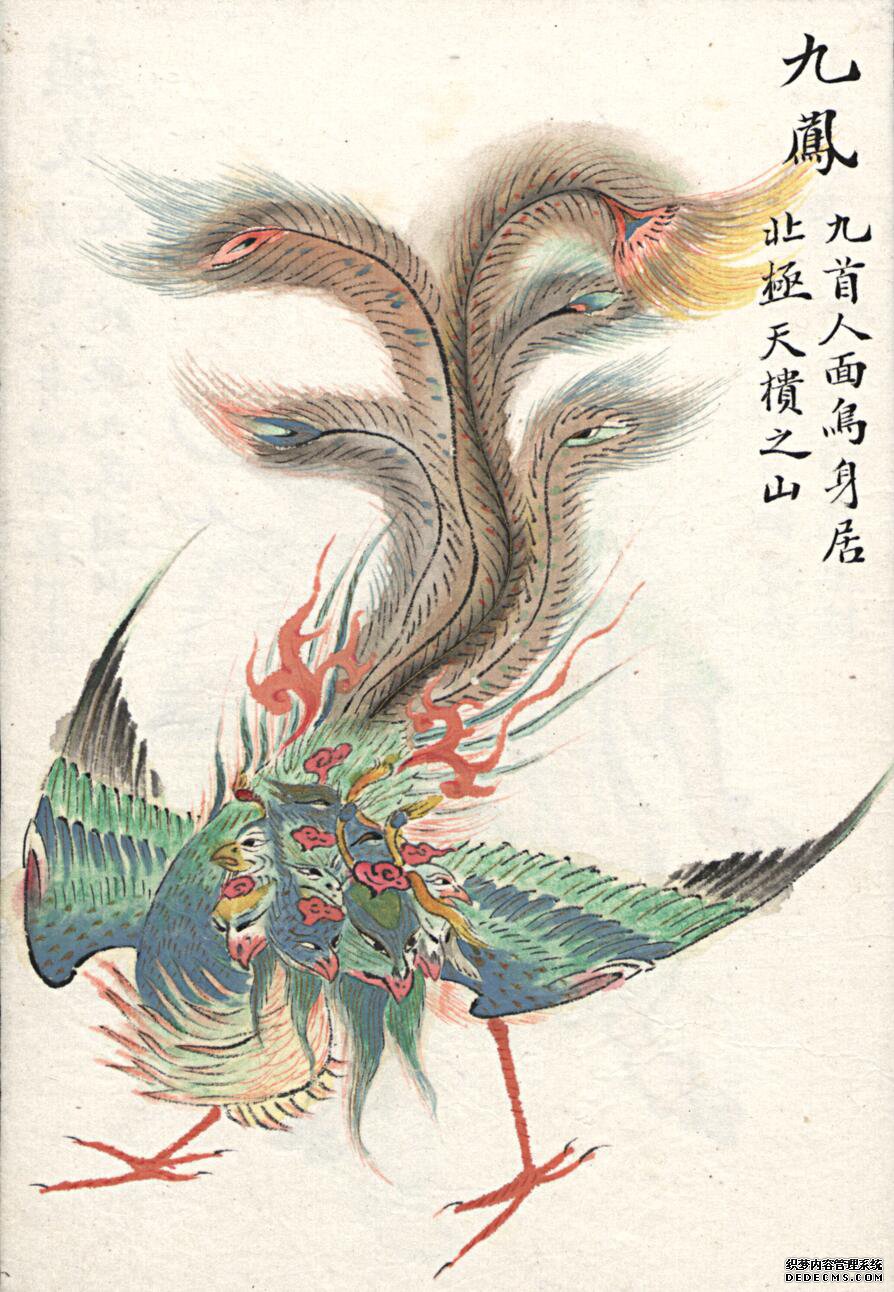 九鳳
九首人面鳥身居
北極天樻之山
织梦内容管理系统
DEDECMS.COM